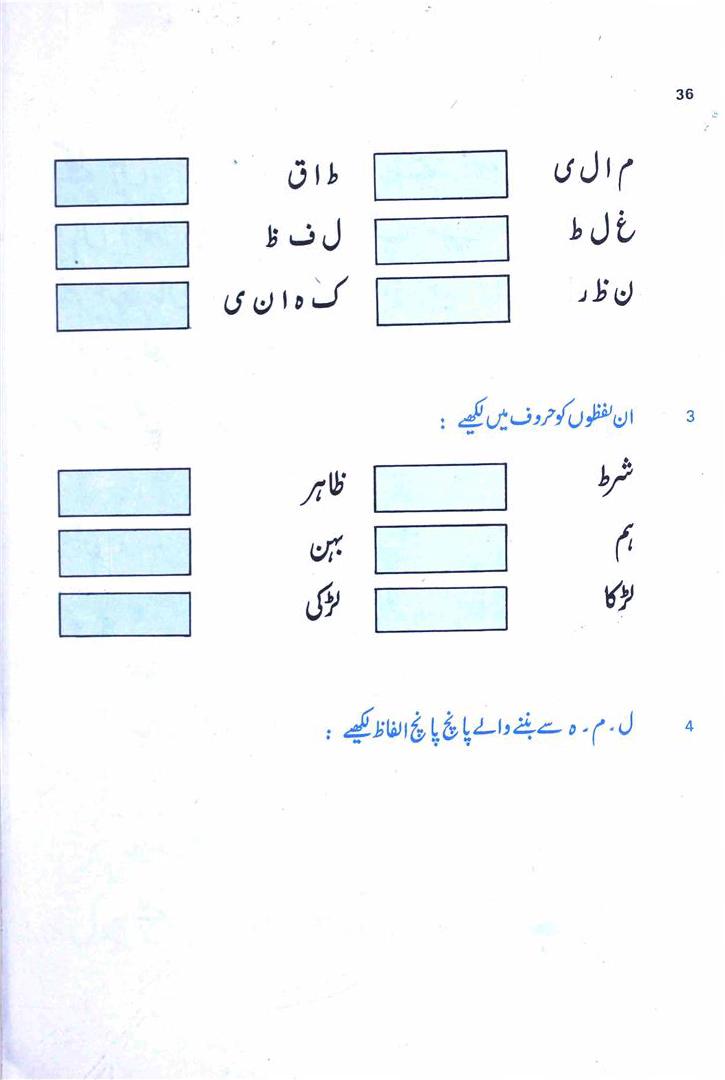 36
م ا ل ی ط ا ق
غ ل ط ل ف ظ
ن ظ ر ک ہ ا ن ی
3 ان لفظوں کو حروف میں لکھیے :
شرط ظاہر
ہم بہن
لڑکا لڑکی
4 ل ۔ م ۔ ہ سے بننے والے پانچ پانچ الفاظ لکھیے :